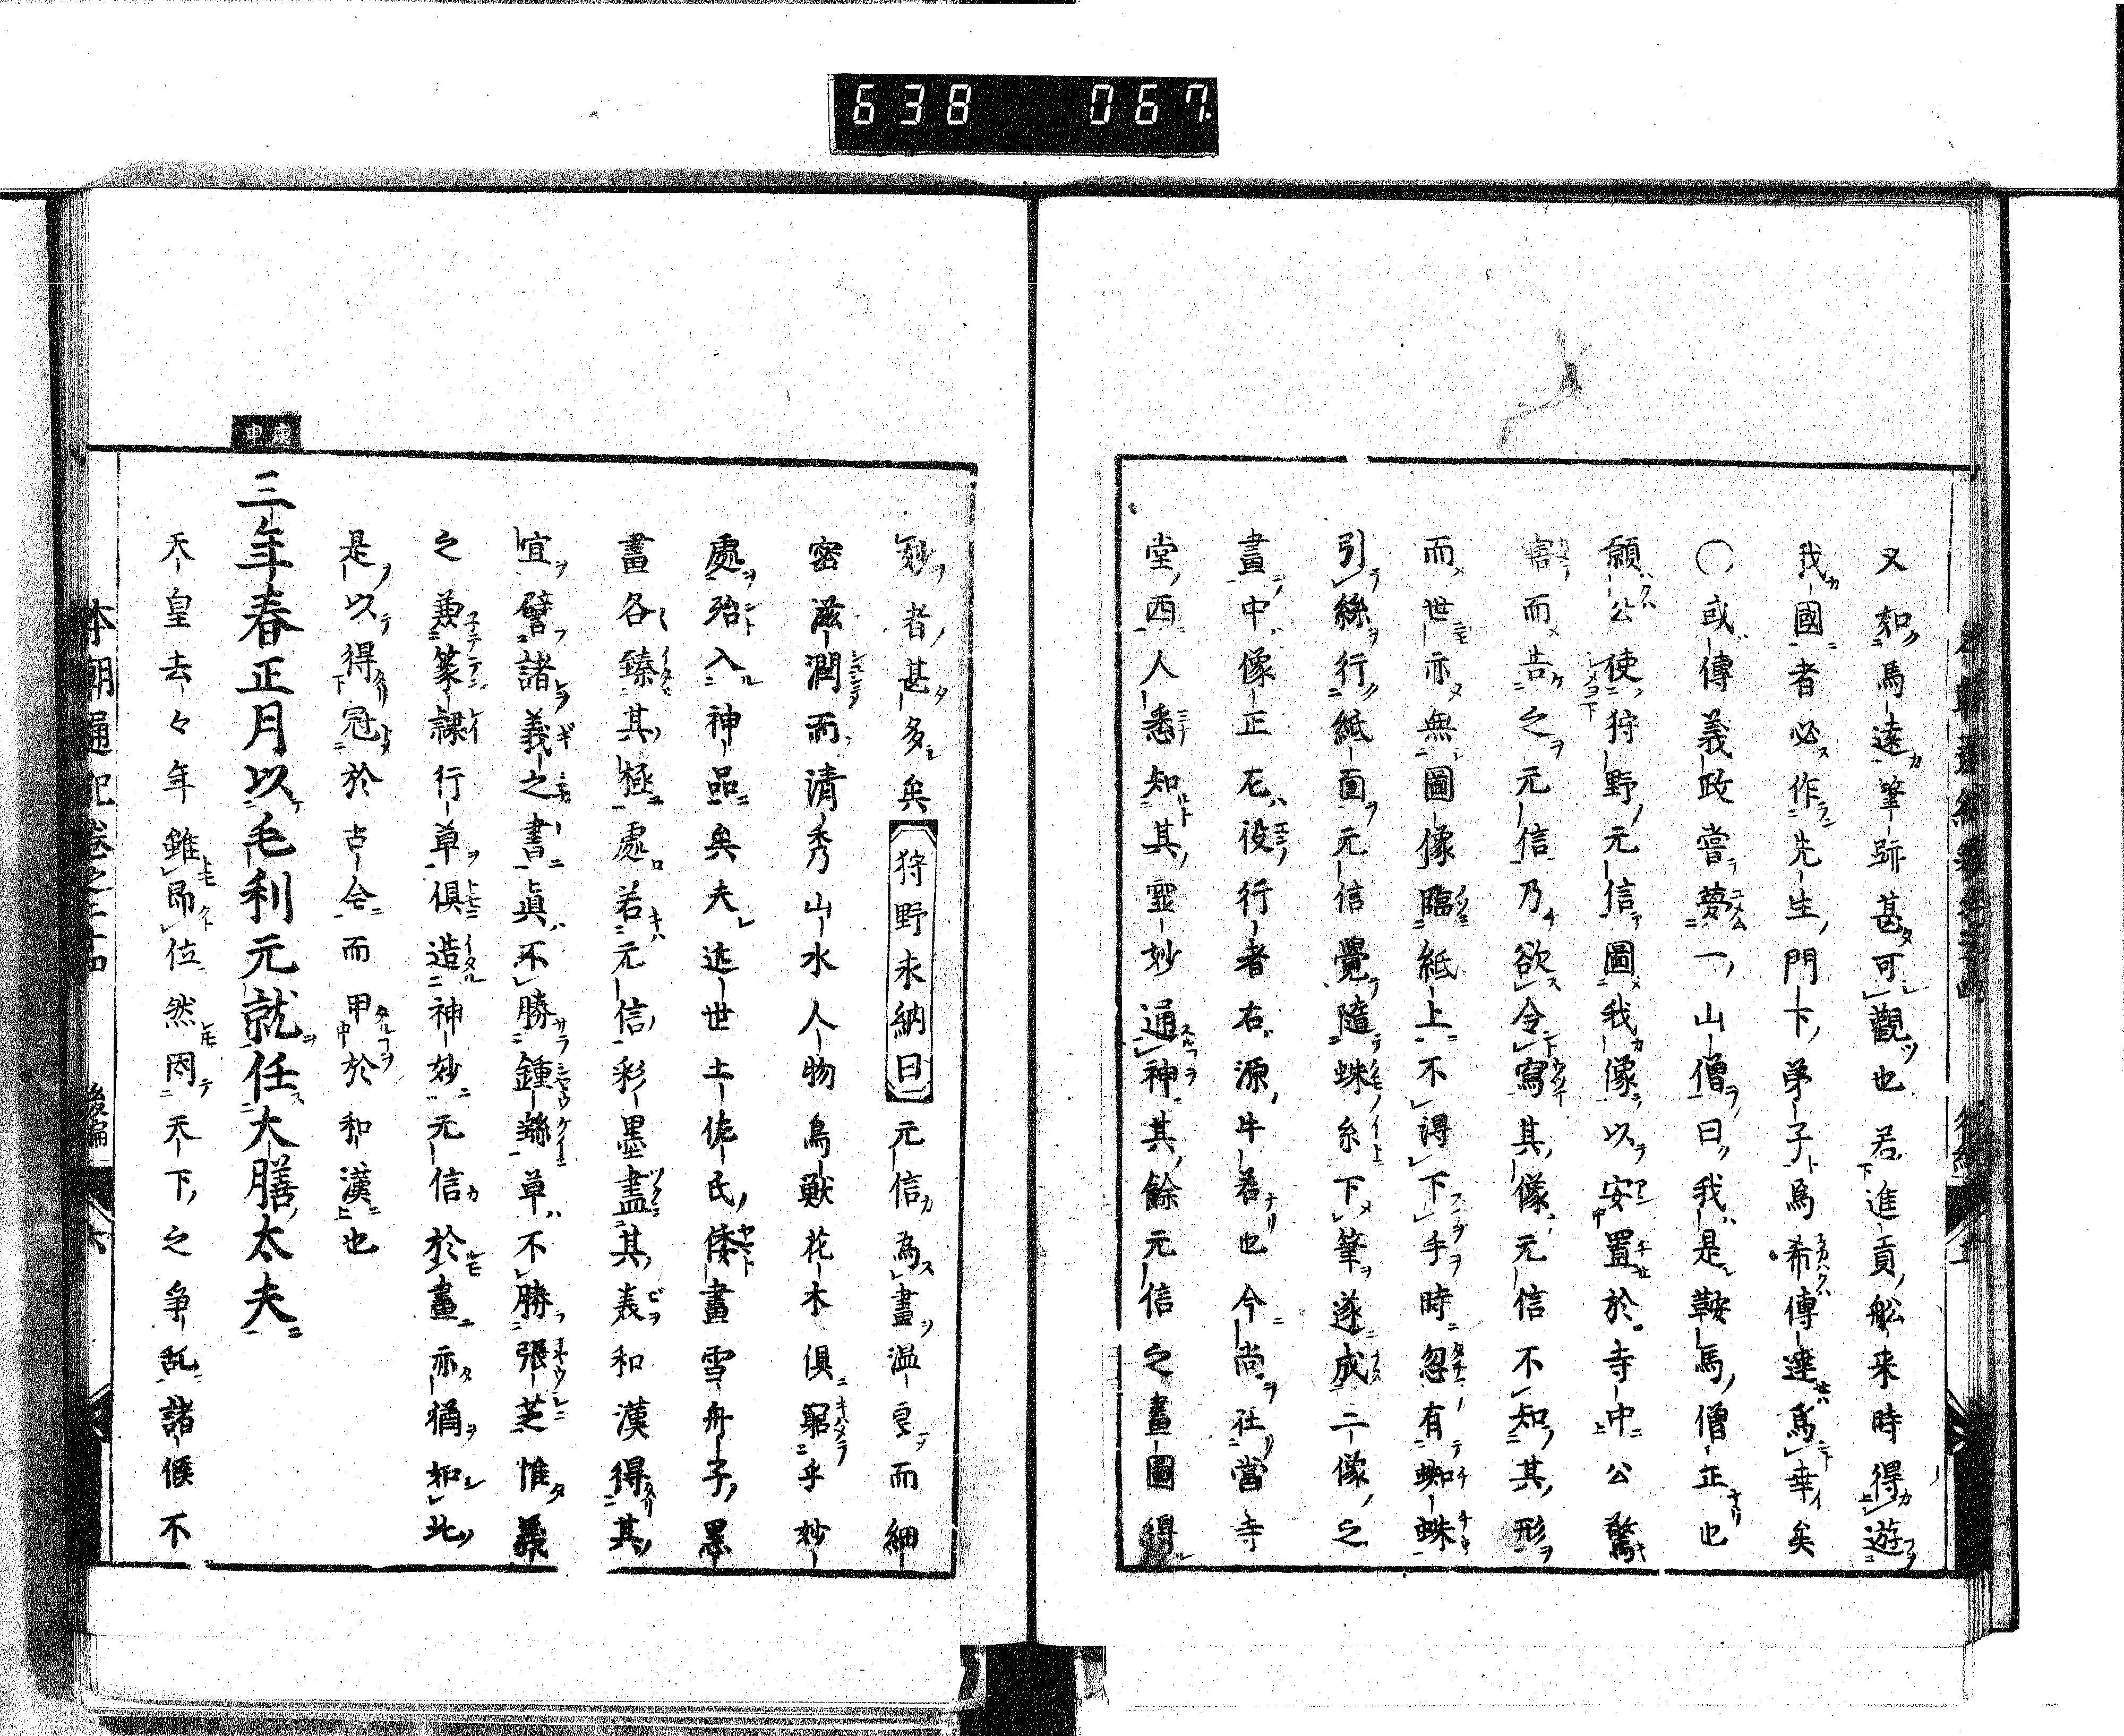 638 067
又如馬遠筆跡甚可觀也若進貢舩来時得遊
我國者必作先生門下弟子爲希傳達爲幸矣
〇或傳義政嘗夢一山僧曰我是鞍馬僧正也
願公使狩野元信圖我像以安置於寺中公驚
寤而告之元信乃欲令寫其像元信不知其形
而世亦無圖像臨紙上不得下手時忽有蜘蛛
引絲行紙面元信覺隨蛛糸下筆遂成二像之
畫中像正左役行者右源牛若也今尚社當寺
堂西人悉知其霊妙通神其餘元信之畫圖得
妙者甚多矣狩野永納曰元信為畫温良而細
密滋潤而清秀山水人物鳥獣花木倶窮乎妙
處殆入神品矣夫近世土佐氏倭畫雪舟子墨
畫各臻其極處若元信彩墨盡其表和漢得其
宜譬諸義之書眞不勝鍾繇草不勝張芝惟義
之兼篆隷行草倶造神妙元信於畫亦猶如此
是以得冠於古今而甲於和漢也
庚申
三年春正月以毛利元就任大膳太夫
天皇去々年雖即位然罔天下之争乱諸侯不
本朝通紀巻之二十四 後編 六